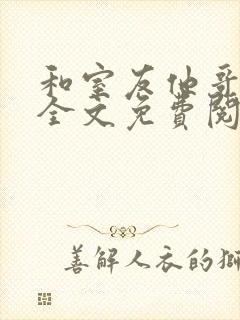 和室友他哥
全文免費閱
善解人衣的獅